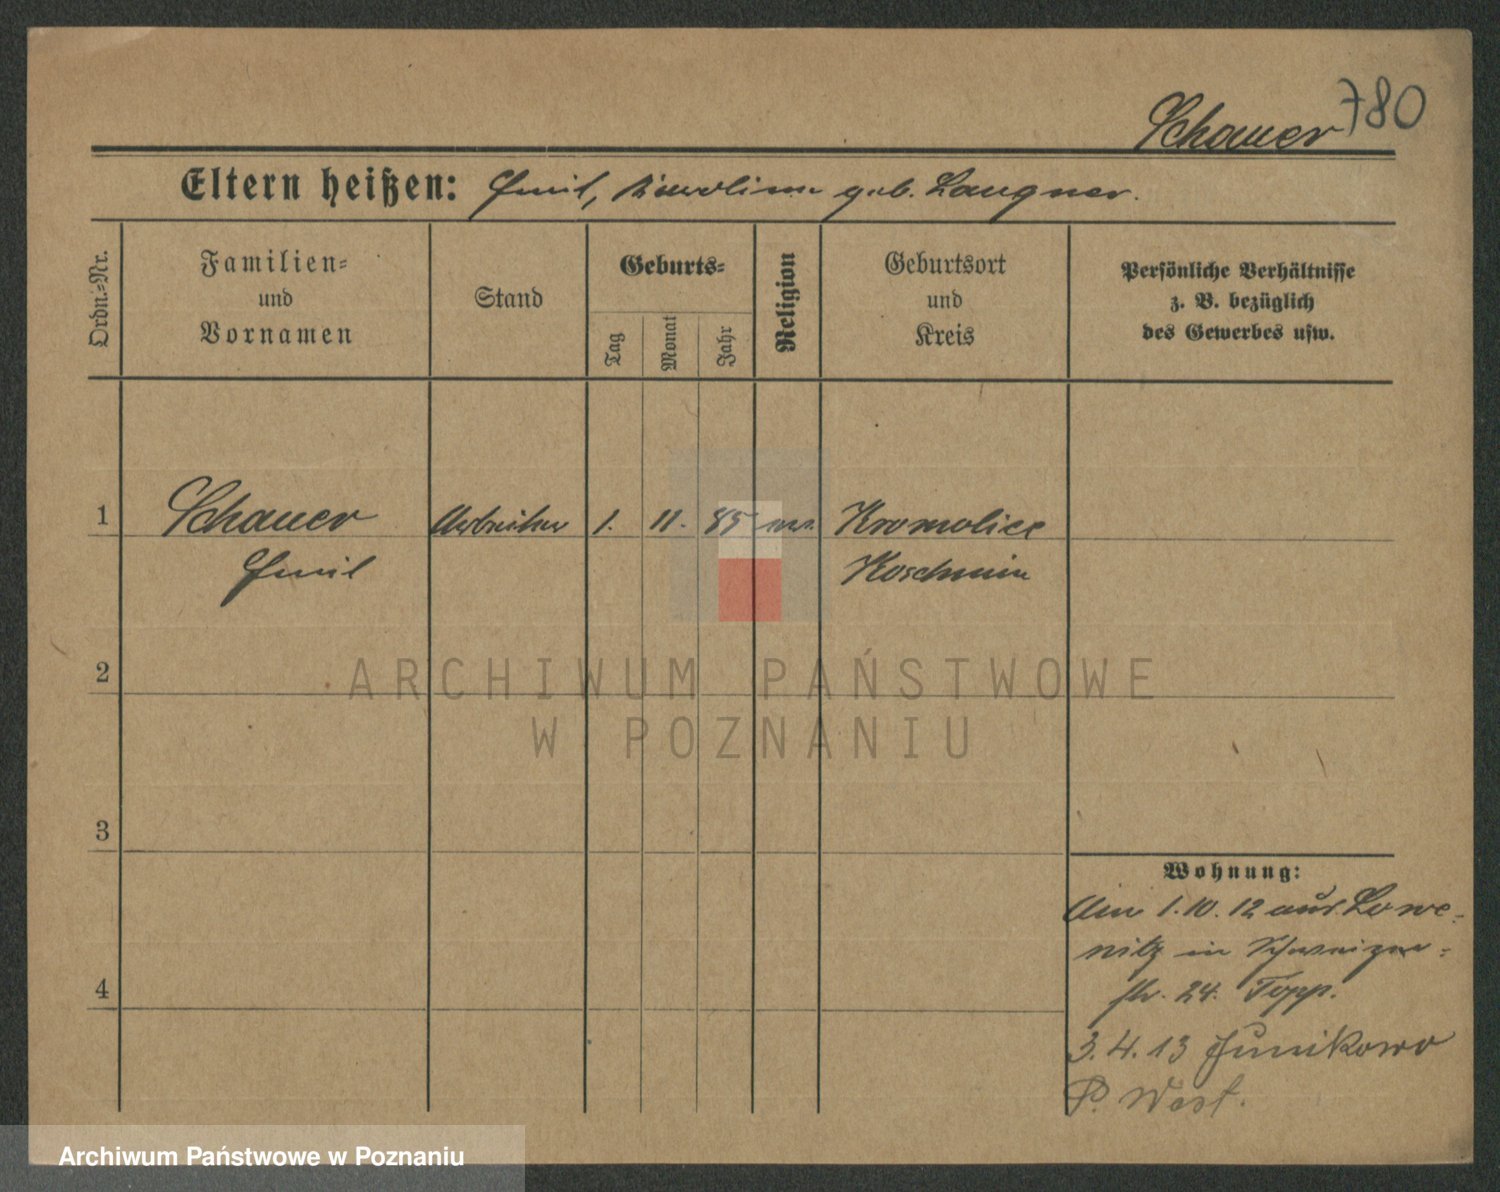 Schauer 780
Eltern heißen: Emil, Karoline geb. Langner.
Ordn.-Nr.
Familien-
und
Vornamen
Stand
Geburts-
Tag
Monat
Jahr
Religion
Geburtsort
und
Kreis
Persönliche Verhältnisse
z. B. bezüglich
des Gewerbes usw.
1 Schauer Arbeiter 1. 11. 85 Kromolice
Emil Koschmin
2
3
4
Wohnung:
Am 1.10.12 aus Lowe-
nitz in Schweizer-
str. 24. Topp.
3.4.13 Junikowo
P. West.
ARCHIWUM PAŃSTWOWE
W POZNANIU
Archiwum Państwowe w Poznaniu